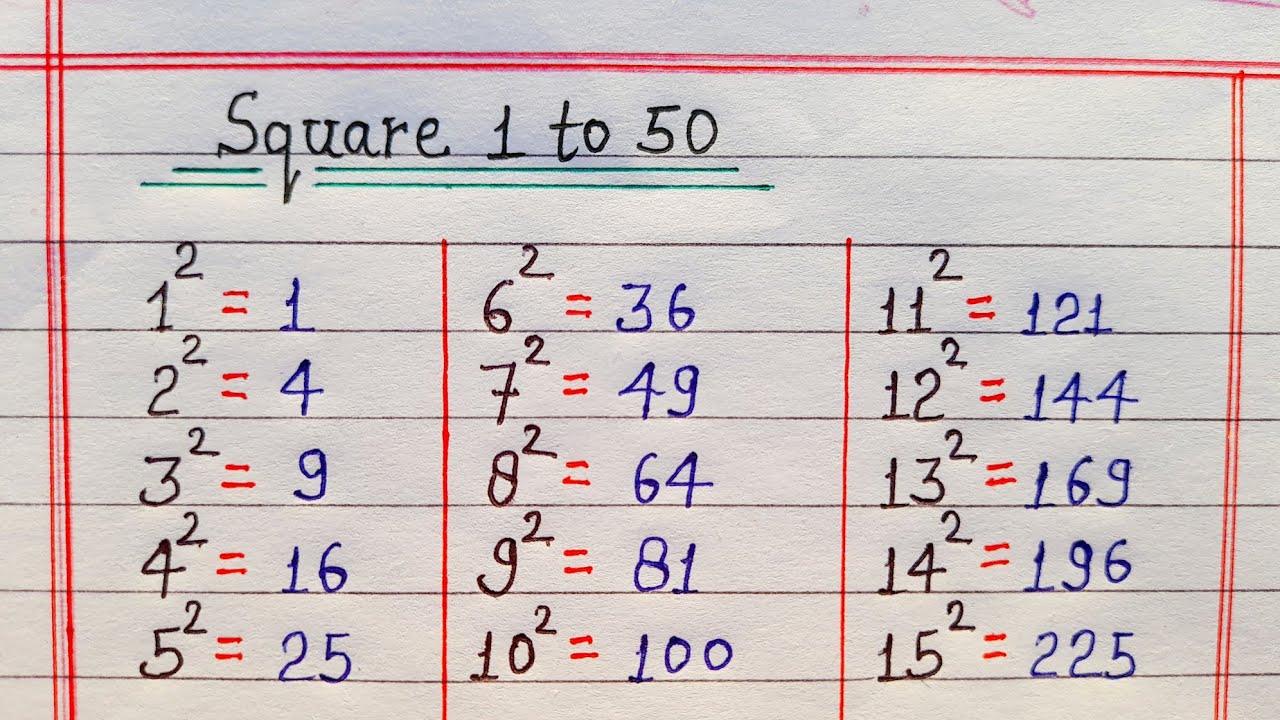 Square 1 to 50
1² = 1
2² = 4
3² = 9
4² = 16
5² = 25
6² = 36
7² = 49
8² = 64
9² = 81
10² = 100
11² = 121
12² = 144
13² = 169
14² = 196
15² = 225